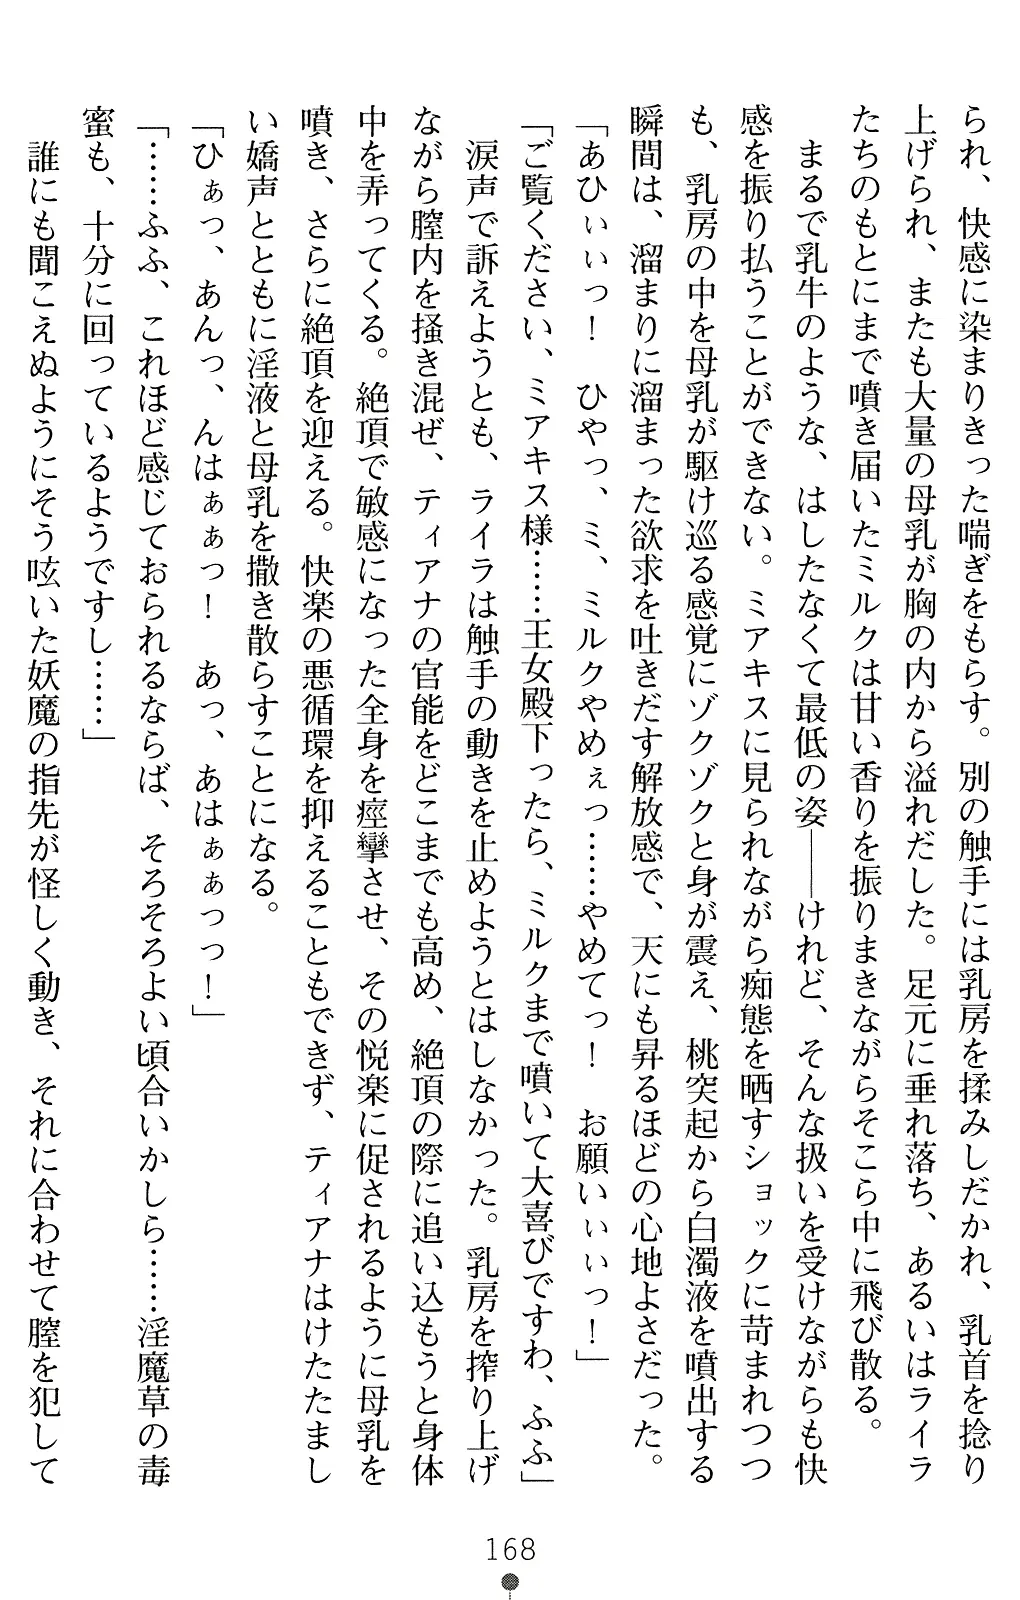 られ、快感に染まりきった喘ぎをもらす。別の触手には乳房を揉みしだかれ、乳首を捻り
上げられ、またも大量の母乳が胸の内から溢れだした。足元に垂れ落ち、あるいはライラ
たちのもとにまで噴き届いたミルクは甘い香りを振りまきながらそこら中に飛び散る。
　まるで乳牛のような、はしたなくて最低の姿――けれど、そんな扱いを受けながらも快
感を振り払うことができない。ミアキスに見られながら痴態を晒すショックに苛まれつつ
も、乳房の中を母乳が駆け巡る感覚にゾクゾクと身が震え、桃突起から白濁液を噴出する
瞬間は、溜まりに溜まった欲求を吐きだす解放感で、天にも昇るほどの心地よさだった。
「あひぃぃっ！　ひやっ、ミ、ミルクやめぇっ……やめてっ！　お願いぃぃっ！」
「ご覧ください、ミアキス様……王女殿下ったら、ミルクまで噴いて大喜びですわ、ふふ」
　涙声で訴えようとも、ライラは触手の動きを止めようとはしなかった。乳房を搾り上げ
ながら膣内を掻き混ぜ、ティアナの官能をどこまでも高め、絶頂の際に追い込もうと身体
中を弄ってくる。絶頂で敏感になった全身を痙攣させ、その悦楽に促されるように母乳を
噴き、さらに絶頂を迎える。快楽の悪循環を抑えることもできず、ティアナはけたたまし
い嬌声とともに淫液と母乳を撒き散らすことになる。
「ひぁっ、あんっ、んはぁぁっ！　あっ、あはぁぁっっ！」
「……ふふ、これほど感じておられるならば、そろそろよい頃合いかしら……淫魔草の毒
蜜も、十分に回っているようですし……」
　誰にも聞こえぬようにそう呟いた妖魔の指先が怪しく動き、それに合わせて膣を犯して
168